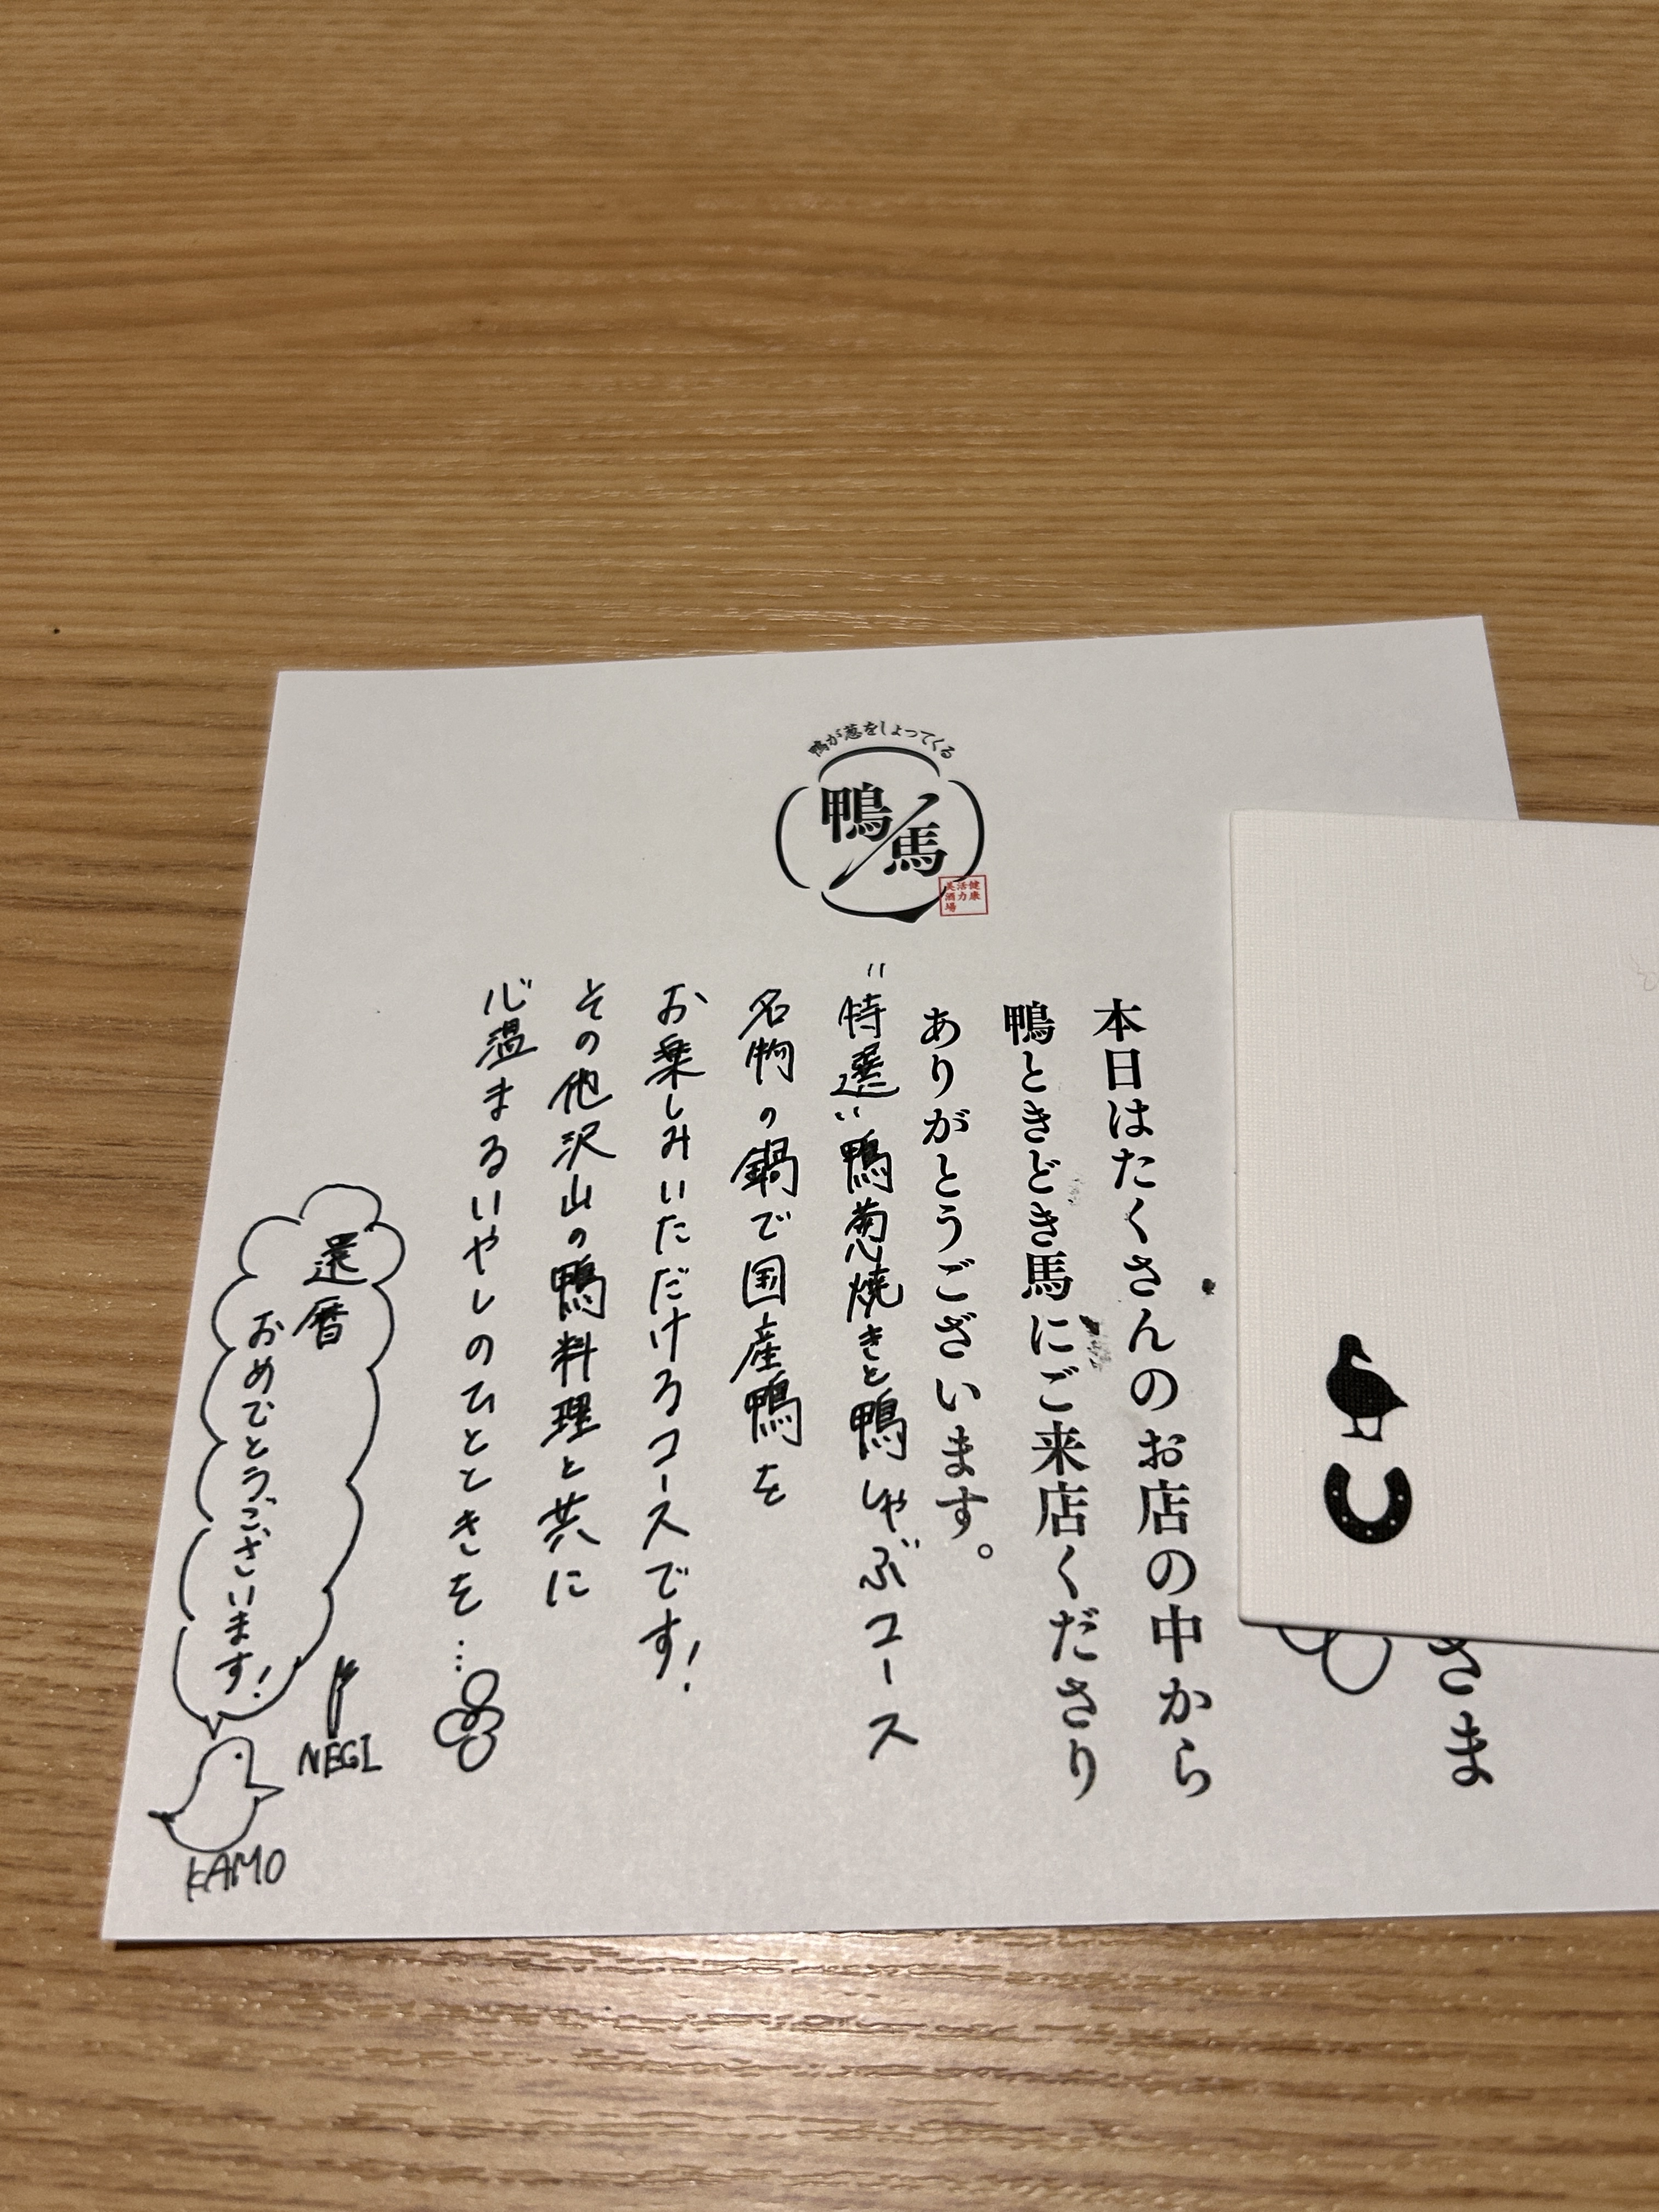 鴨が葱をしょってくる
鴨/馬
健康
活力
美酒場
さま
本日はたくさんのお店の中から
鴨ときどき馬にご来店くださり
ありがとうございます。
"特選"鴨葱焼きと鴨しゃぶコース
名物の鍋で国産鴨を
お楽しみいただけるコースです!
その他沢山の鴨料理と共に
心温まるいやしのひとときを…
還暦
おめでとうございます!
NEGI
KAMO